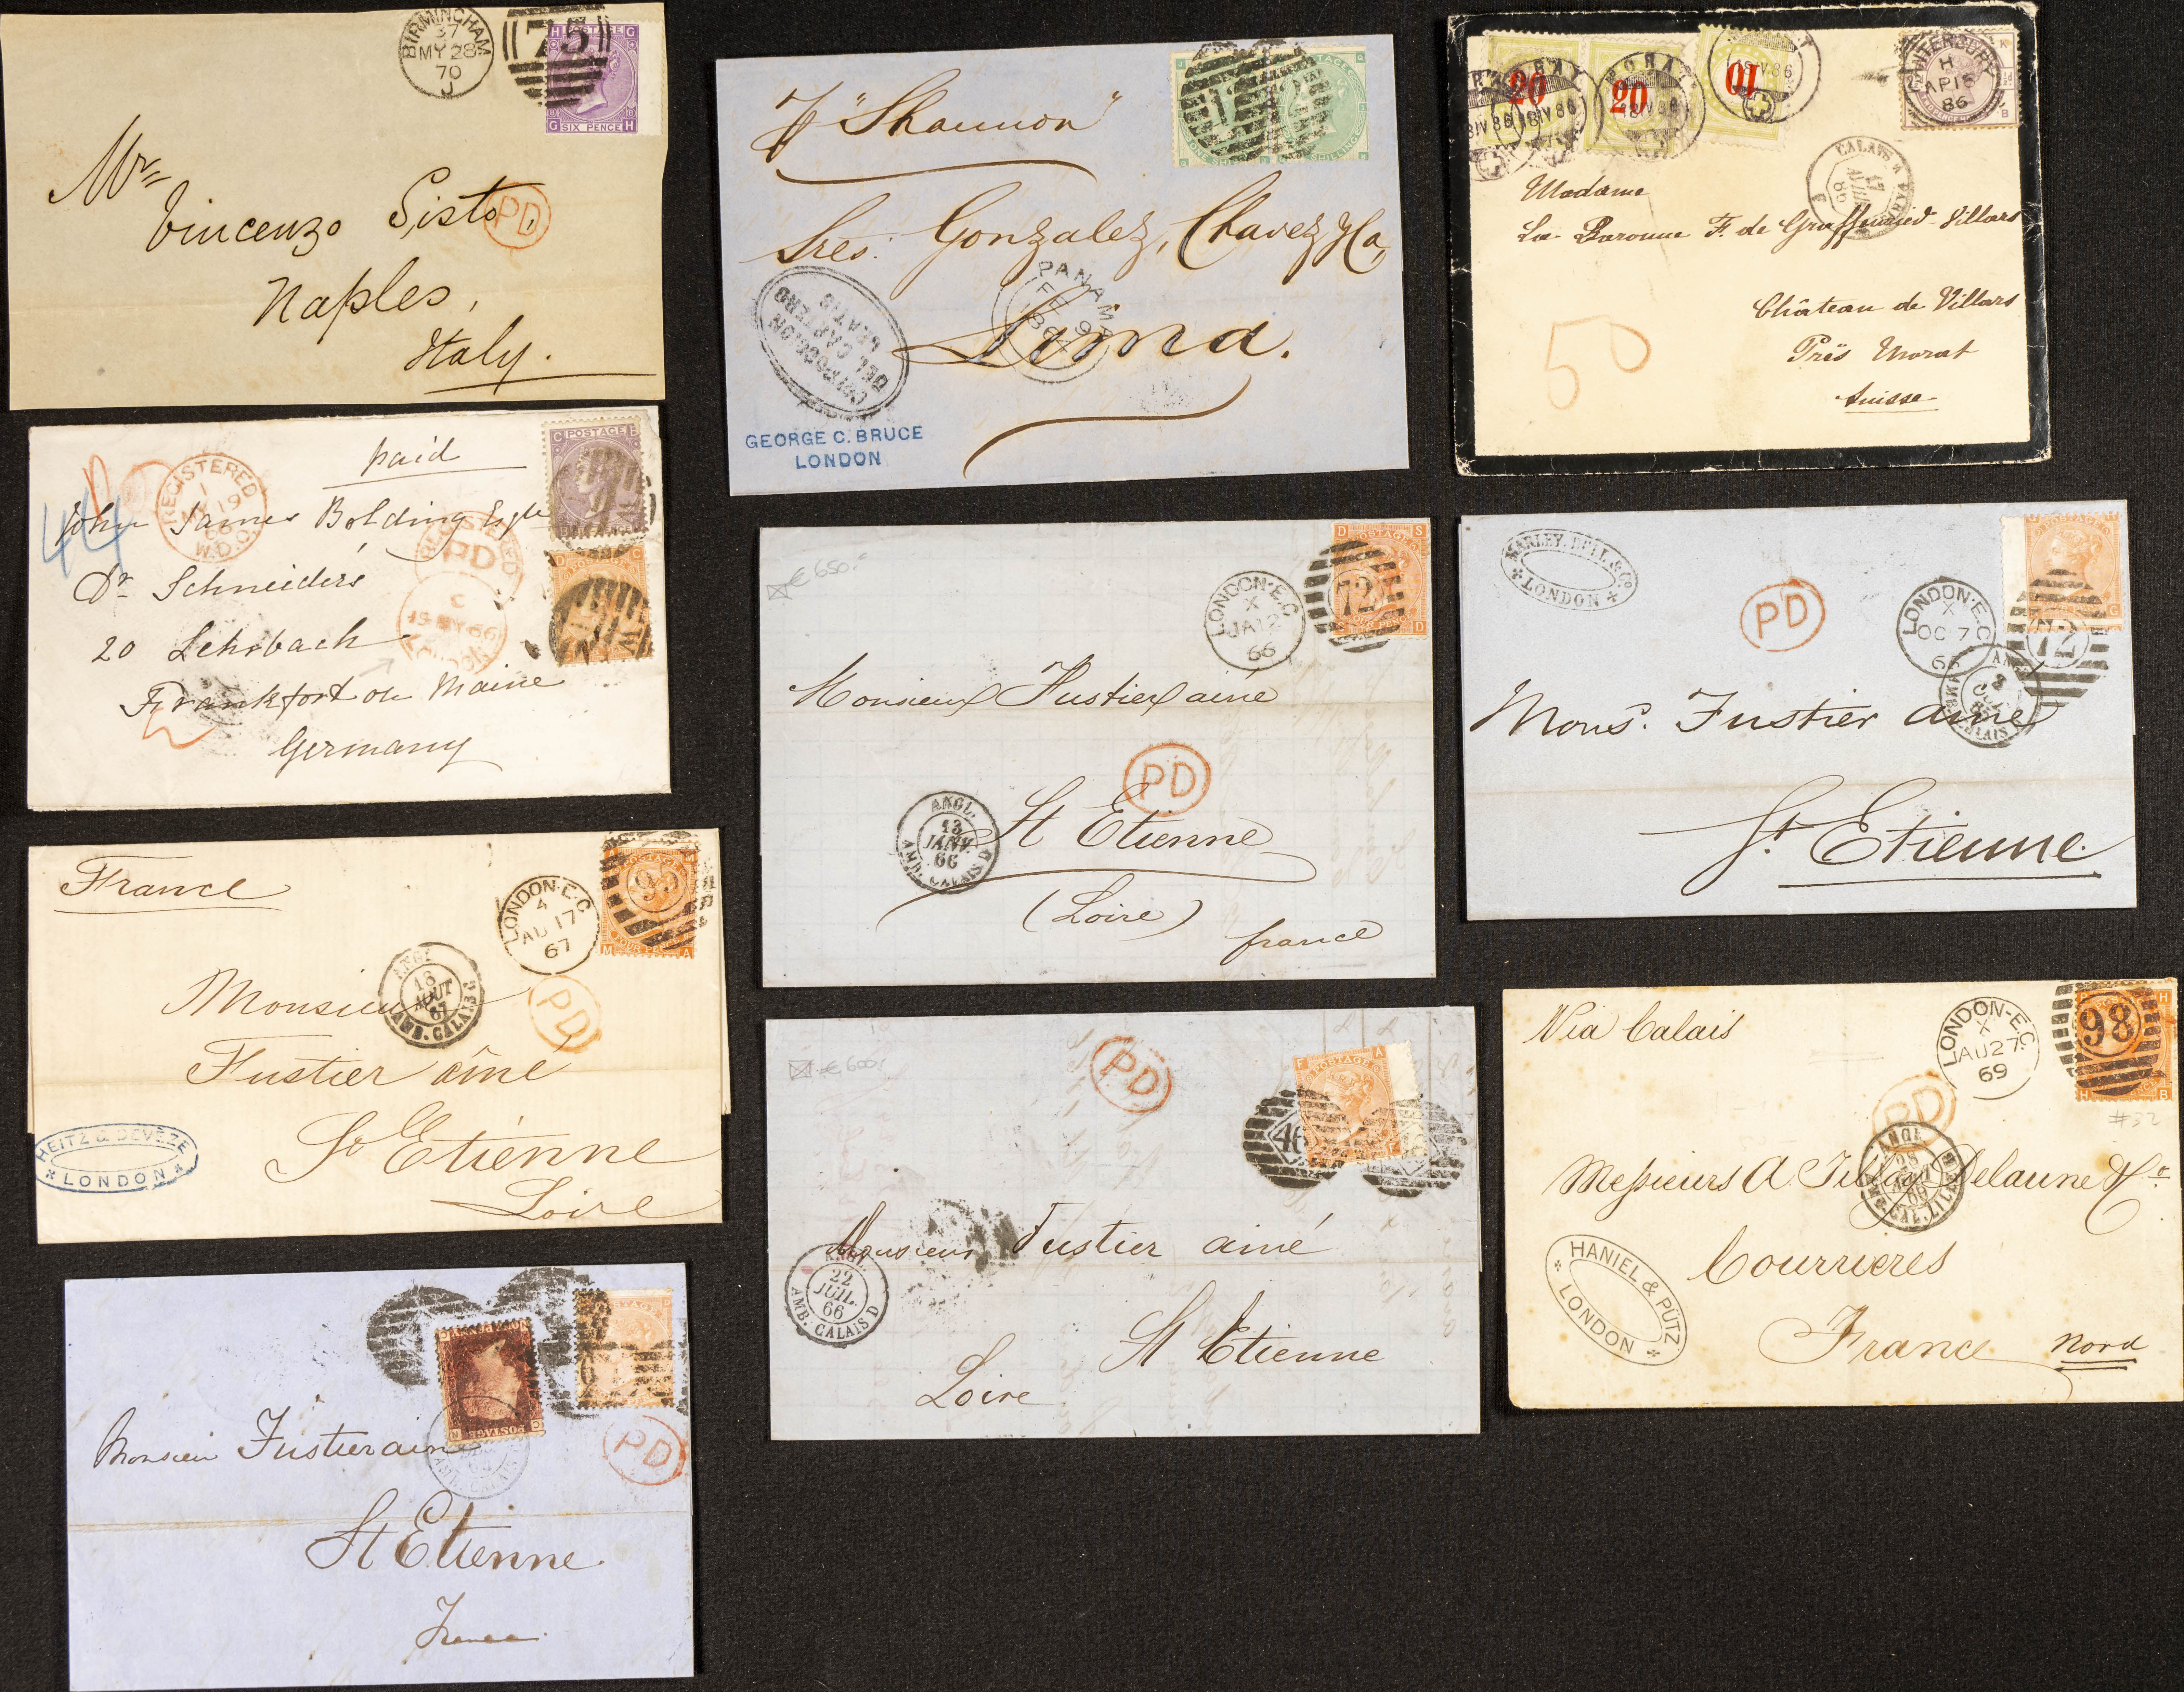 BIRMINGHAM
37
MY 28
70
J
75
POSTAGE
SIX PENCE
Mr
Vincenzo Sisto,
PD
Naples,
Italy.
Pr "Shannon"
Sres: Gonzalez, Chavez y Ca,
Lima.
PANAMA
FE 9
GEORGE C. BRUCE
LONDON
20
20
10
MORAT
18 IV 86
CANTERBURY
H
AP 16
86
CALAIS
Madame
La Baronne F. de Graffenried-Villars
Château de Villars
Près Morat
Suisse
50
paid
REGISTERED
19
66
W.D.O.
POSTAGE
John James Bolding Esqre
PD
Dr Schneiders
C
19 MY 66
LONDON
20 Lehrbach
Frankfort on Maine
Germany
44
€650.-
LONDON·E.C
X
JA 12
66
72
POSTAGE
Monsieur Fustier ainé
PD
ANGL.
13
JANV.
66
AMB. CALAIS D
St Etienne
(Loire)
france
MARLEY, BULL & Co
LONDON
PD
LONDON·E.C
X
OC 7
72
POSTAGE
Mons. Fustier ainé
St Etienne.
France
LONDON·E.C
4
AU 17
67
95
ANGL
18
AOUT
67
AMB. CALAIS
PD
Monsieur
Fustier aîné
HEITZ & DEVÈZE
LONDON
St Etienne
Loire
€600.-
PD
POSTAGE
46
Monsieur Fustier ainé
22
JUIL.
66
AMB. CALAIS D
St Etienne
Loire
Via Calais
LONDON-E.C
X
AU 27
69
98
#32
PD
ANGL
28
AOUT
69
Messieurs A Tilloy Delaune & Co
Courrieres
HANIEL & PÜTZ
LONDON
France Nord
POSTAGE
PD
Monsieur Fustier ainé
St Etienne
France